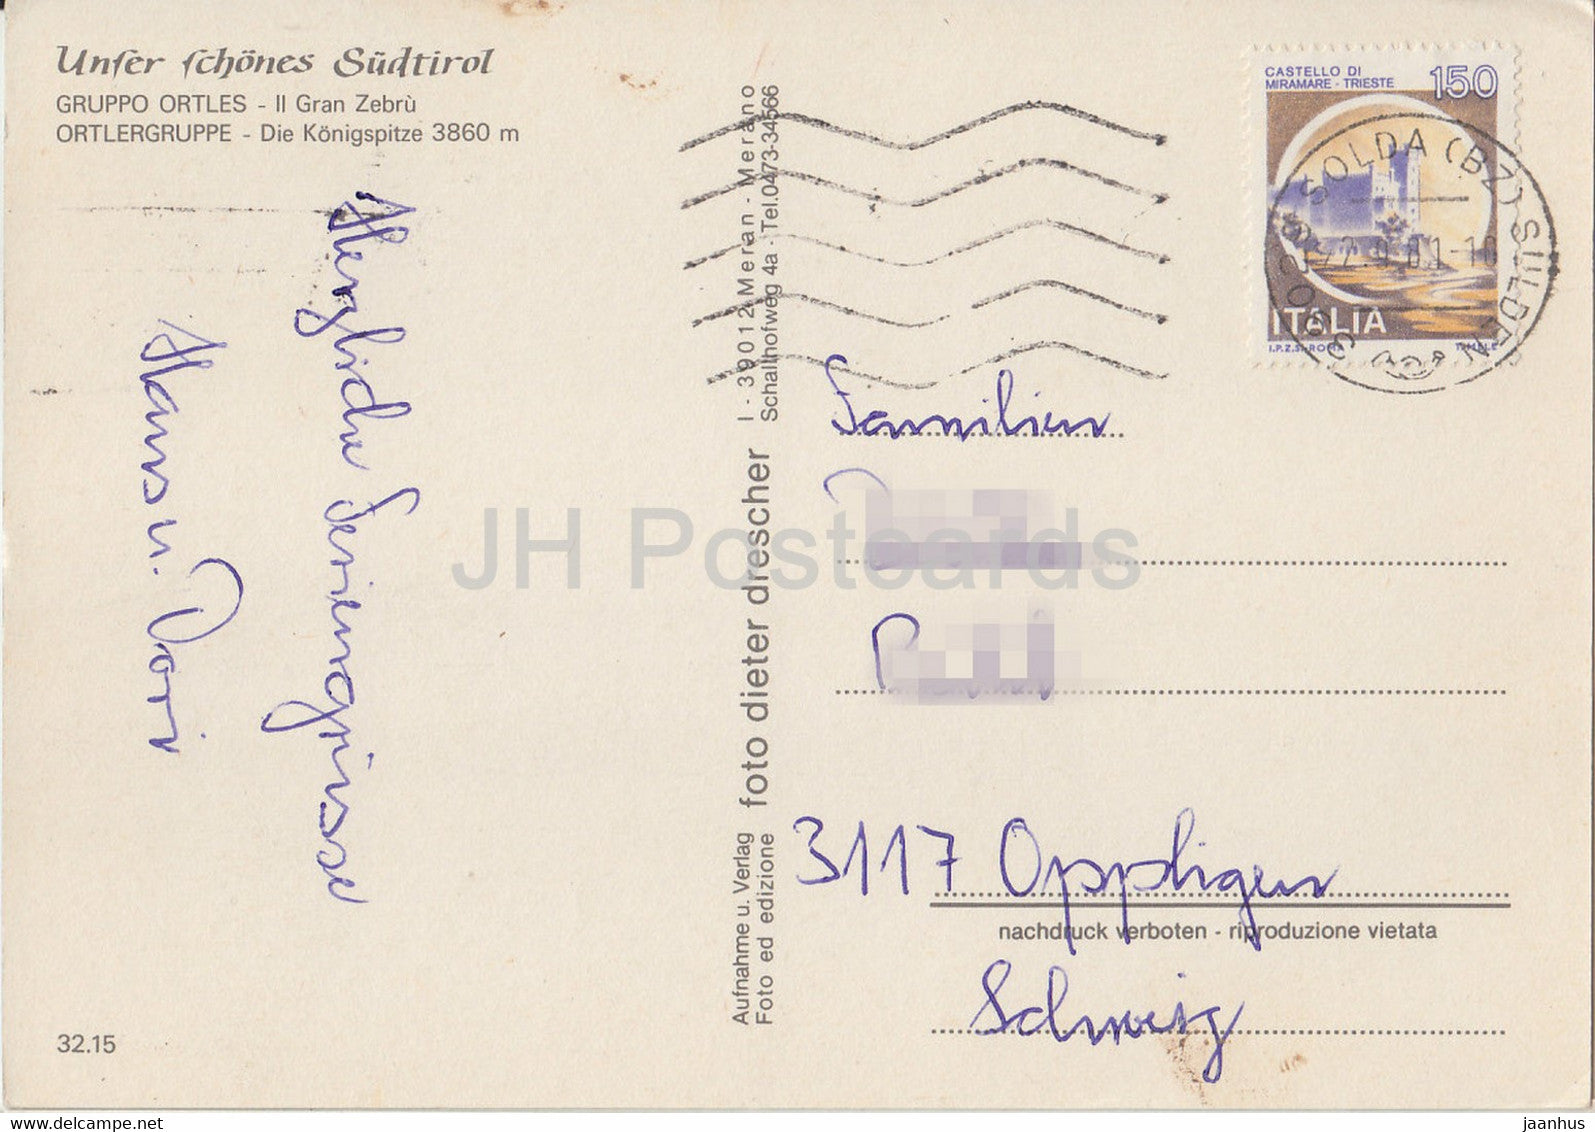 Unser schönes Südtirol
GRUPPO ORTLES - Il Gran Zebrù
ORTLERGRUPPE - Die Königspitze 3860 m
Herzliche Feriengrüsse
Hans u. Dori
32.15
Aufnahme u. Verlag
Foto ed edizione
foto dieter drescher
I - 39012 Meran - Merano
Schallhofweg 4a - Tel. 0473-34566
CASTELLO DI
MIRAMARE - TRIESTE
150
ITALIA
I.P.Z.S. ROMA
SOLDA (BZ) SULDEN
Familien
3117 Oppligen
nachdruck verboten - riproduzione vietata
Schweiz
JH Postcards
www.delcampe.net
jaanhus